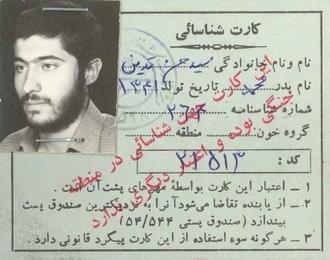 کارت شناسائی
نام و نام خانوادگی سید حسن
نام پدر تاریخ تولد ۱۳۴۱
شماره شناسنامه
گروه خون: منطقه
کد : ۲۲۵۱۳
این کارت جهت شناسائی در منطقه
جنگی بوده و اعتبار دیگری ندارد
۱ ــ اعتبار این کارت بواسطه مهرهای پشت آن است .
۲ ــ از یابنده تقاضا می‌شود آنرا به نزدیکترین صندوق پست
بیندازد (صندوق پستی ۱۵۴/۵۴۴)
۳ ــ هرگونه سوء استفاده از این کارت پیگرد قانونی دارد .